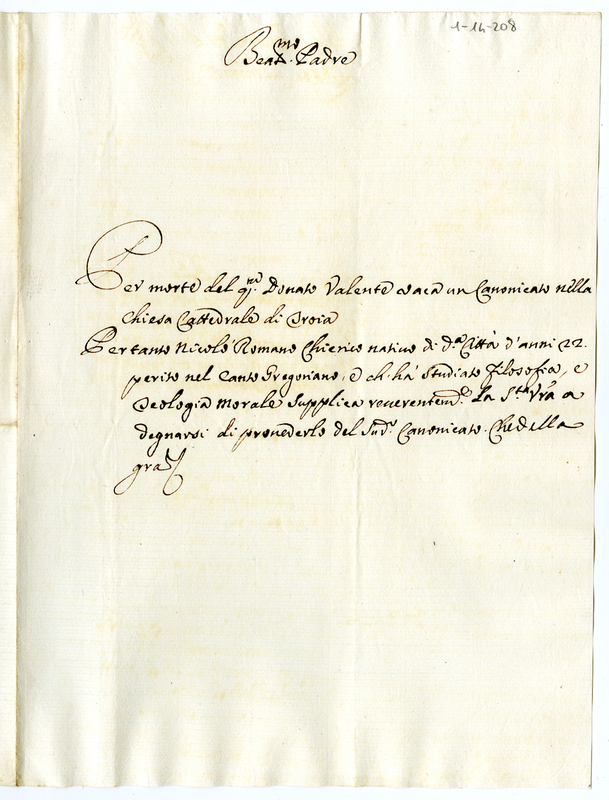 1-14-208
Beat.mo Padre
Per morte del q.m Donato Valente vaca un Canonicato nella
Chiesa Cattedrale di Troia
Pertanto Nicolò Romano Chierico nativo di d.a Città d'anni 22.
perito nel Canto Gregoriano, e ch' hà studiato filosofia, e
Teologia Morale supplica reverentem.e La S.tà Vr̃a a
degnarsi di provederlo del sud.o Canonicato. Che della
gra